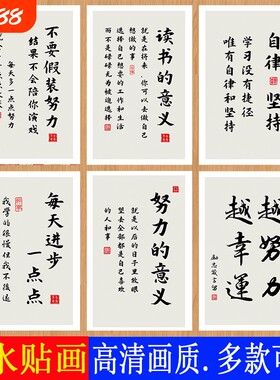 88
不要假装努力
结果不会陪你演戏
每天多一点点努力
读书的意义
就是在将来,你可以去做自己
想做的事
就是以自己想要的工作和生活
而不是碌碌无为被迫选择
自律 坚持
学习没有捷径
唯有自律和坚持
每天进步
一点点
我学的很慢但我不后退
努力的意义
就是以后的日子里放眼
望去全部都是自己喜欢
的人和事
越努力
越幸運
励志箴言
水贴画 高清画质. 多款可